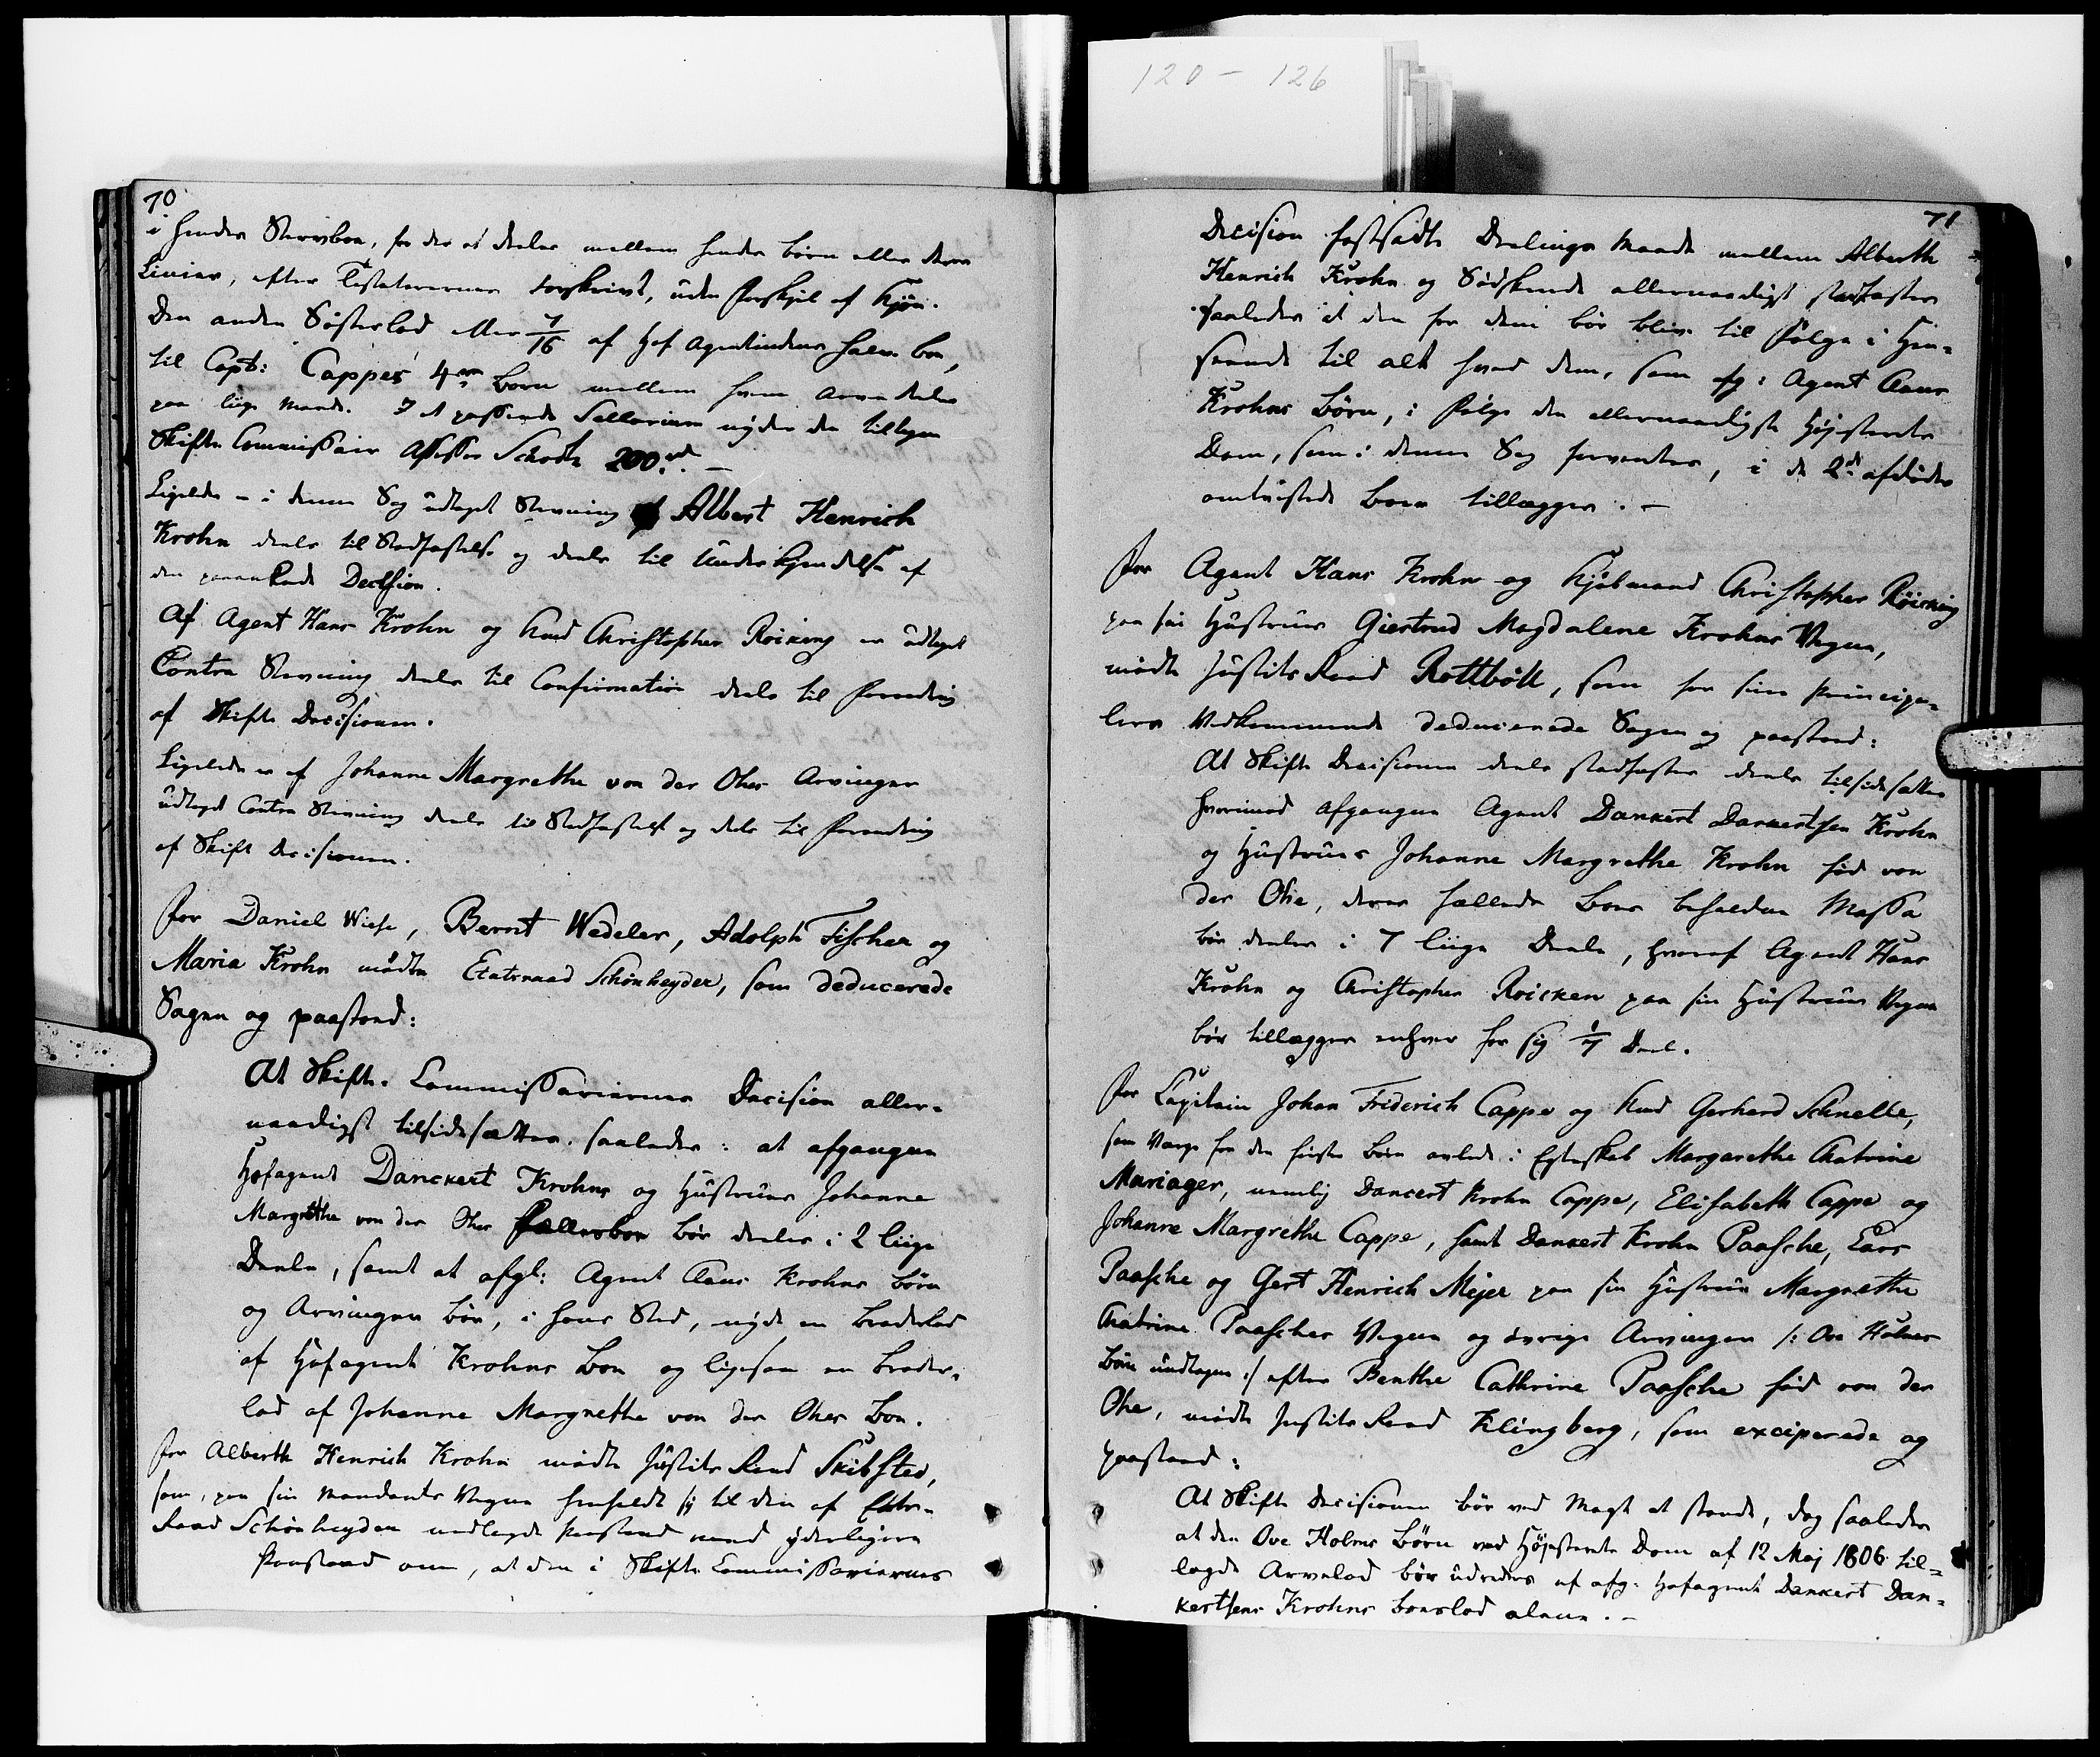 120 - 126
70
i hendes Stervboe, for der at deeles mellem hendes börn eller deres
Linier, efter Testaternes forskrivt, uden forskjel af Kjön.
Den anden Söster lod eller 7/16 af Hof Agentindens halve boe,
til Capt: Cappes 4re Börn mellem hvem Arven deeles
paa liige Maade. I et passende Sallarium nyder den tiltagne
Skifte Commissair Assessor Schodtz 200rd. —
Ligeledes - i denne Sag udtaget Stevning af Albert Henrich
Krohn deels til Stadfæstelse og deels til Underkjendelse af
den paaankede Decision.
Af Agent Hans Krohn og Kmd Christopher Roicking er udtaget
Contra Stevning deels til Confirmation deels til forandring
af Skifte Decisionen.
Ligeledes er af Johanne Margrethe von der Ohes Arvinger
udtaget Contra Stevning deels til Stadfæstelse og dels til forandring
af Skifte Decisionen.
For Daniel Wiese, Bernt Wedeler, Adolph Fischer og
Maria Krohn mödte Etatsraad Schönheyder, som deducerede
Sagen og paastod:
At Skifte Commissariernes Decision aller-
naadigst tilsidesættes. saaledes: at afgangne
Hofagent Danckert Krohns og Hustrues Johanne
Margrethe von der Ohes Fællesboe bör deeles i 2 liige
Deele, samt at afgl: Agent Claus Krohns Börn
og Arvinger bör, i hans Sted, nyde en Broderlod
af Hofagent Krohns Boe og ligesaa en Broder-
lod af Johanne Margrethe von der Ohes Boe.
For Alberth Henrich Krohn mödte Justits Raad Skibsted,
som, paa sin Mandants Vegne henholdt sig til den af Etats-
Raad Schönheyder nedlagde Paastand med yderligere
Paastand om, at den i Skifte Commissariernes
71
Decision fastsadte Deelings Maade mellem Alberth
Henrich Krohn og Södskende allernaadigst stadfæstes
saaledes at den for dem bör blive til Fölge i Hen-
seende til alt hvad dem, som afg: Agent Claus
Krohns Börn, i Fölge den allernaadigste Höjesterets
Dom, som i denne Sag forventes, i de 2de afdödes
omtvistede Boer tillægges. —
For Agent Hans Krohn og Kjöbmand Christopher Röicking
paa sin Hustrues Giertrud Magdalene Krohns Vegne,
mödte Justits Raad Rottböll, som for sine Principa-
lers Vedkommende deducerede Sagen og paastod:
At Skifte Decisionen deels stadfæstes deels tilsidesættes
hvorimod afgangne Agent Dankert Dankertsen Krohn
og Hustrues Johanne Margrethe Krohn föd von
der Ohe, deres fælleds Boes beholdne Massa
bör deeles i 7 liige Deele, hvoraf Agent Hans
Krohn og Christopher Roicken paa sin Hustrues Vegne
bör tillægges enhver for sig 1/7 Deel.
For Capitain Johan Friderich Cappe og Kmd Gerhard Schnelle,
som Værge for den förstes Börn avlede i Egteskab Margarethe Chatrine
Mariager, nemlig Dancert Krohn Cappe, Elisabeth Cappe og
Johanne Margrethe Cappe, samt Dankert Krohn Paasche, Lars
Paasche og Gert Henrich Mejer paa sin Hustrue Margrethe
Chatrine Paasches Vegne og övrige Arvinger /: Ove Holmes
Börn undtagne :/ efter Benthe Cathrine Paasche föd von der
Ohe, mödte Justits Raad Klingberg, som exciperede og
paastod:
At Skifte Decisionen bör ved Magt at stande, dog saaledes
at den Ove Holms Börn ved Höjesterets Dom af 12 Maj 1806 til-
lagde Arvelod bör udredes af afg: Hofagent Dankert Dan-
kertsens Krohns Boeslod alene. —